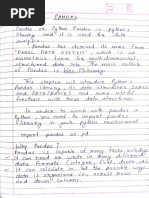 PANDAS
Pandas or Python Pandas is Python's
library and it is used for data
analysis.
Pandas has derived its name from
"PANEL DATA SYSTEM"
term for multi-dimensional,
structured data sets. The main author
of Pandas is Wes McKinney.
This chapter will Pandas
library its data structures (SERIES
and DATAFRAMES) and
functions with these data structures.
In order to work with pandas
you need to import pandas
library in your python environment
import pandas as pd
Why Pandas :
Pandas is capable of many tasks including
it can read or write in many different
data formats (integer, float, double, etc.)
it can calculate in all the possible ways
data is organized i.e., across rows
and down columns.